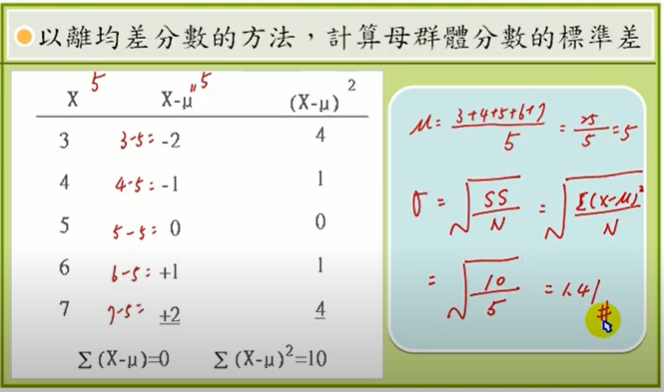 以離均差分數的方法，計算母群體分數的標準差
X 5 X-μ "5 (X-μ)²
3 3-5= -2 4
4 4-5= -1 1
5 5-5= 0 0
6 6-5= +1 1
7 7-5= +2 4
∑(X-μ)=0 ∑(X-μ)²=10
μ= 3+4+5+6+7/5 = 25/5 =5
σ = √SS/N = √Σ(X-μ)²/N
= √10/5 = 1.41
#